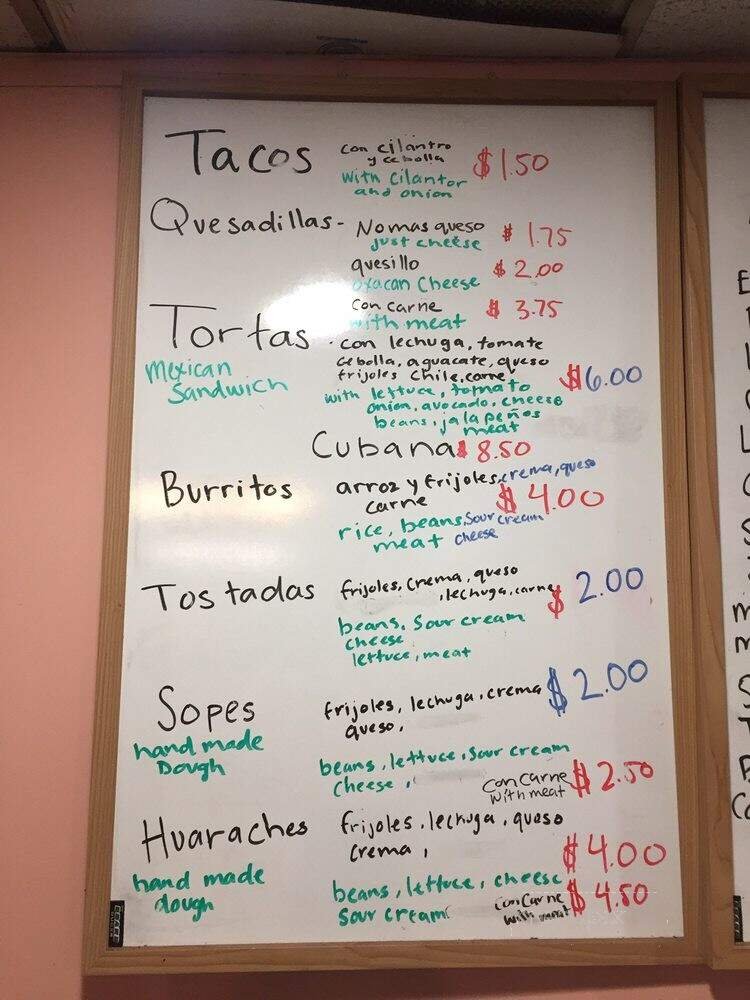 Tacos con cilantro $1.50
y cebolla
with cilantor
and onion
Quesadillas - Nomas queso $ 1.75
just cheese
quesillo $ 2.00
oxacan Cheese
con carne $ 3.75
with meat
Tortas . con lechuga, tomate
cebolla, aguacate, queso
frijoles chile, carne $6.00
Mexican
Sandwich
with lettuce, tomato
onion, avocado, cheese
beans, jalapeños
meat
Cubana $ 8.50
Burritos arroz y frijoles, crema, queso
carne $4.00
rice, beans, Sour cream
meat cheese
Tostadas frijoles, crema, queso
, lechuga, carne $ 2.00
beans, Sour cream
cheese
lettuce, meat
Sopes frijoles, lechuga, crema $2.00
queso,
hand made
Dough
beans, lettuce, Sour cream
cheese,
con carne $2.50
with meat
Huaraches frijoles, lechuga, queso
crema, $4.00
hand made
dough
beans, lettuce, cheese
Sour cream
con carne $4.50
with meat